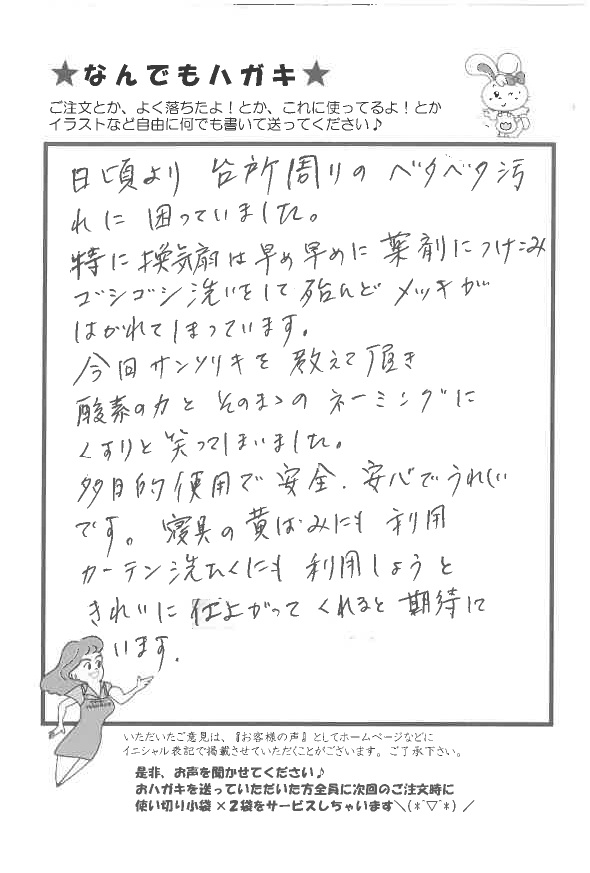 ★なんでもハガキ★
ご注文とか、よく落ちたよ！とか、これに使ってるよ！とか
イラストなど自由に何でも書いて送ってください♪
日頃より 台所周りの ベタベタ汚
れに 困っていました。
特に換気扇は早め早めに薬剤につけこみ
ゴシゴシ洗いをして殆んど メッキが
はがれてしまっています。
今回サンソリキを 教えて頂き
酸素の力と そのまゝの ネーミングに
くすりと笑ってしまいました。
多目的使用で 安全、安心でうれしい
です。寝具の黄ばみにも 利用
カーテン洗たくにも 利用しようと
きれいに 仕上がって くれると 期待して
います.
いただいたご意見は、『お客様の声』としてホームページなどに
イニシャル表記で掲載させていただくことがございます。ご了承下さい。
是非、お声を聞かせてください♪
おハガキを送っていただいた方全員に次回のご注文時に
使い切り小袋×２袋をサービスしちゃいます＼(*´▽`*)／